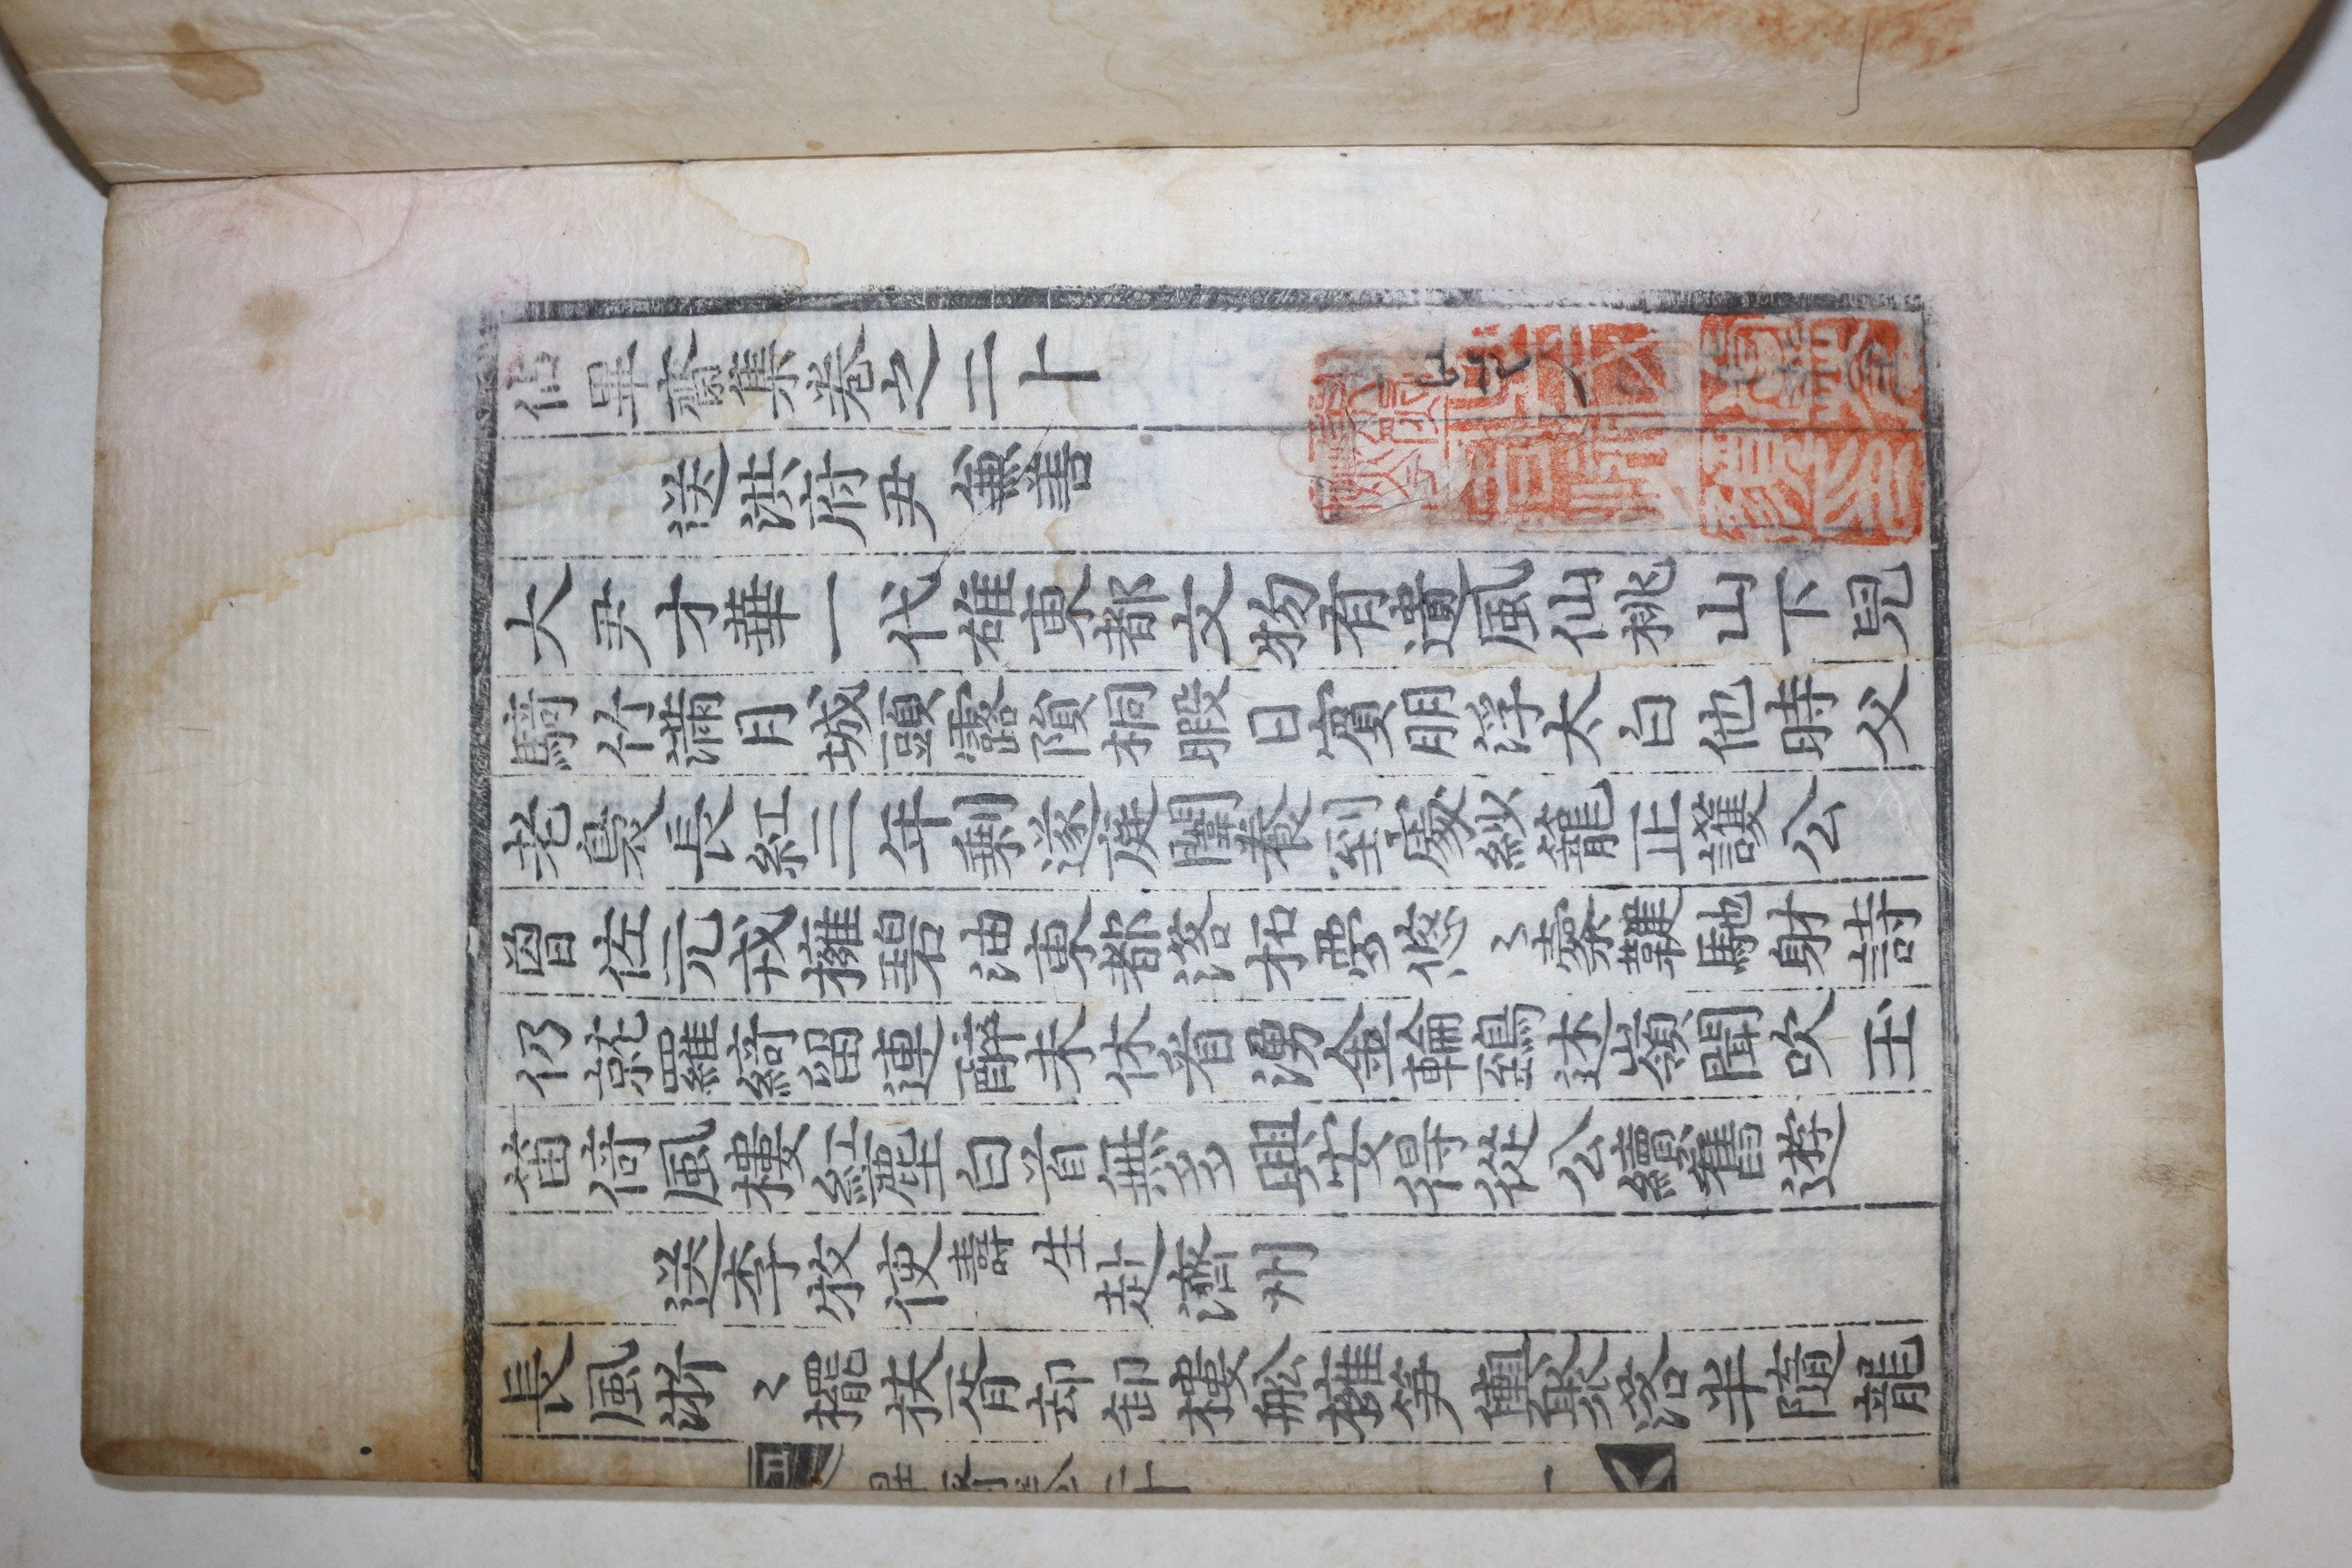 佔畢齋集卷之二十
送洪府尹兼善
大尹才華一代雄東都文物有遺風仙桃山下兒
騎竹滿月城頭露隕桐暇日賓朋浮太白他時父
老裊長紅三年剩遂庭闈養到處紗籠正護公
曾佐元戎擁碧油東都落拓夢悠〻櫜鞬馳射詩
仍就羅綺留連醉未休看湧金輪鵄述嶺聞吹玉
笛倚風樓紅塵白首無多興安得從公續舊遊
送李牧使壽生赴濟州
長風淅〻擺扶胥却卸樓舩擁笋輿聚落半隨龍